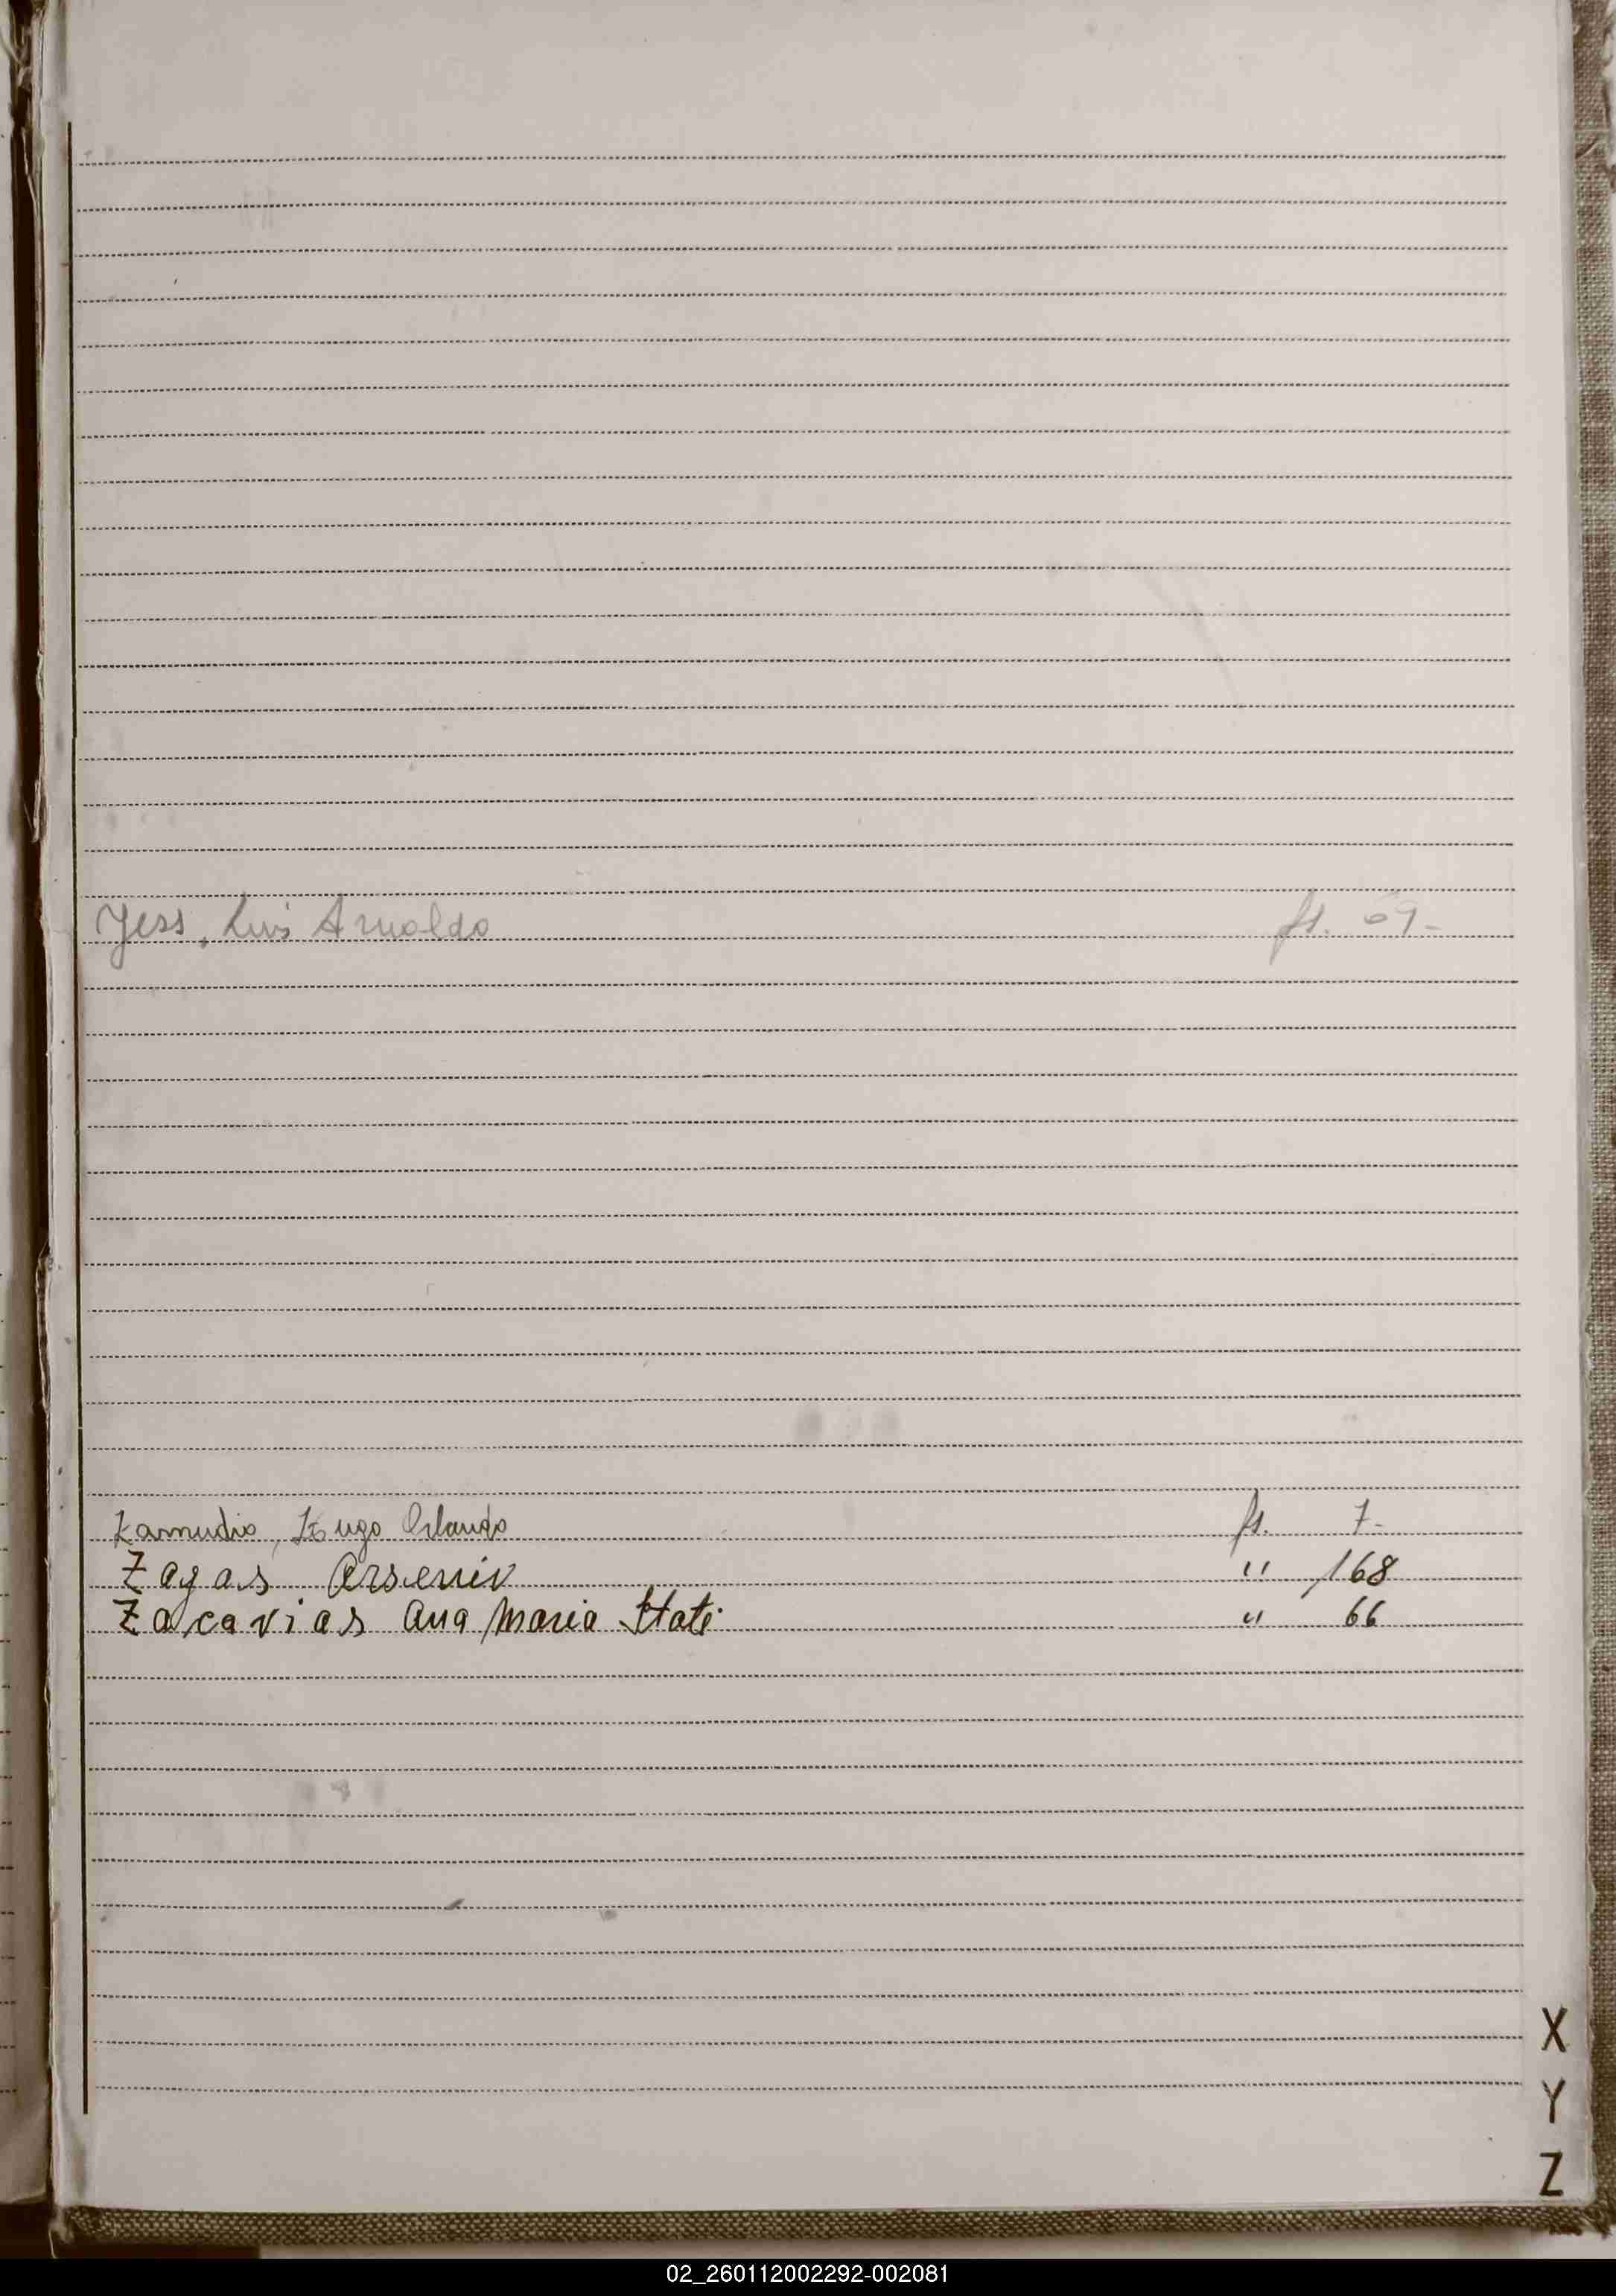 Yess, Luis Arnaldo fs. 69-
Zamudio, Hugo Orlando fs. 7-
Zagas Arsenio " 168
Zacarias Ana Maria " 66
X
Y
Z
02_260112002292-002081